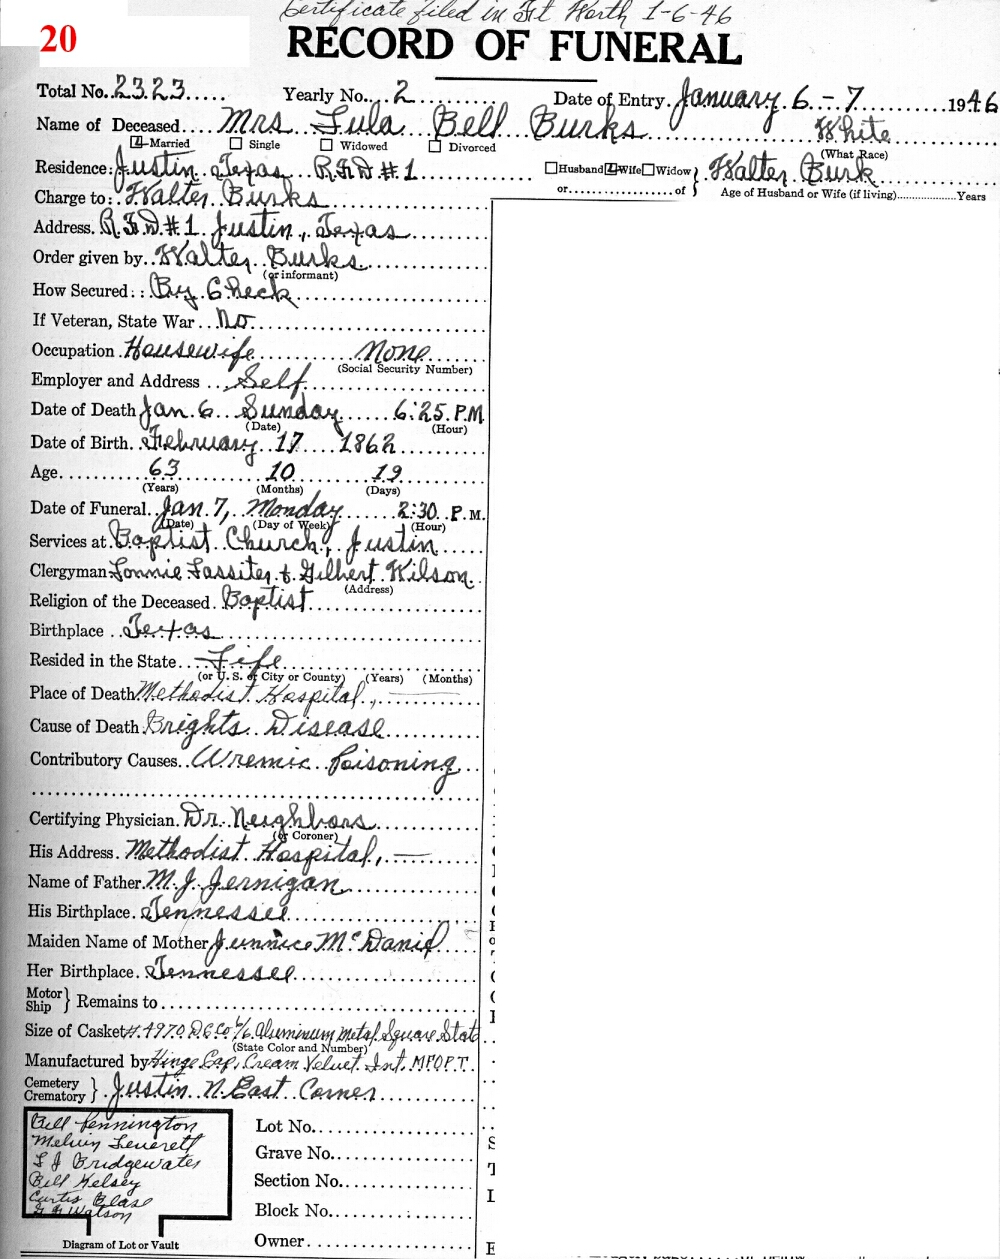 Certificate filed in Ft Worth 1-6-46
20
RECORD OF FUNERAL
Total No. 2323 Yearly No. 2 Date of Entry January 6-7 1946
Name of Deceased Mrs Lula Bell Burks White
Married Single Widowed Divorced (What Race)
Residence: Justin Texas R.F.D #1 Husband Wife Widow Walter Burk
or of Age of Husband or Wife (if living) Years
Charge to: Walter Burks
Address. R.F.D #1 Justin, Texas
Order given by Walter Burks
(or informant)
How Secured: By Check
If Veteran, State War No
Occupation Housewife None
(Social Security Number)
Employer and Address Self
Date of Death Jan. 6 Sunday 6:25 P.M
(Date) (Hour)
Date of Birth. February 17 1862
Age 63 10 19
(Years) (Months) (Days)
Date of Funeral Jan 7, Monday 2:30 P.M.
(Date) (Day of Week) (Hour)
Services at Baptist Church, Justin
Clergyman Lonnie Lassiter & Gilbert Wilson
(Address)
Religion of the Deceased. Baptist
Birthplace Texas
Resided in the State Life
(or U. S. or City or County) (Years) (Months)
Place of Death Methodist Hospital,
Cause of Death Brights Disease
Contributory Causes Uremic Poisoning
Certifying Physician. Dr. Neighbors
(or Coroner)
His Address. Methodist Hospital,
Name of Father M. J. Jernigan
His Birthplace. Tennessee
Maiden Name of Mother Junnice McDaniel
Her Birthplace. Tennessee
Motor
Ship } Remains to
Size of Casket #4970 D.C.Co 6/6 Aluminum Metal Square State
(State Color and Number)
Manufactured by Hinge Cap, Cream Velvet Int. MFOPT.
Cemetery
Crematory } Justin N. East Corner
Bill Pennington
Melvin Leverett
L J Bridgewater
Bill Kelsey
Curtis Blase
Watson
Diagram of Lot or Vault
Lot No.
Grave No.
Section No.
Block No.
Owner